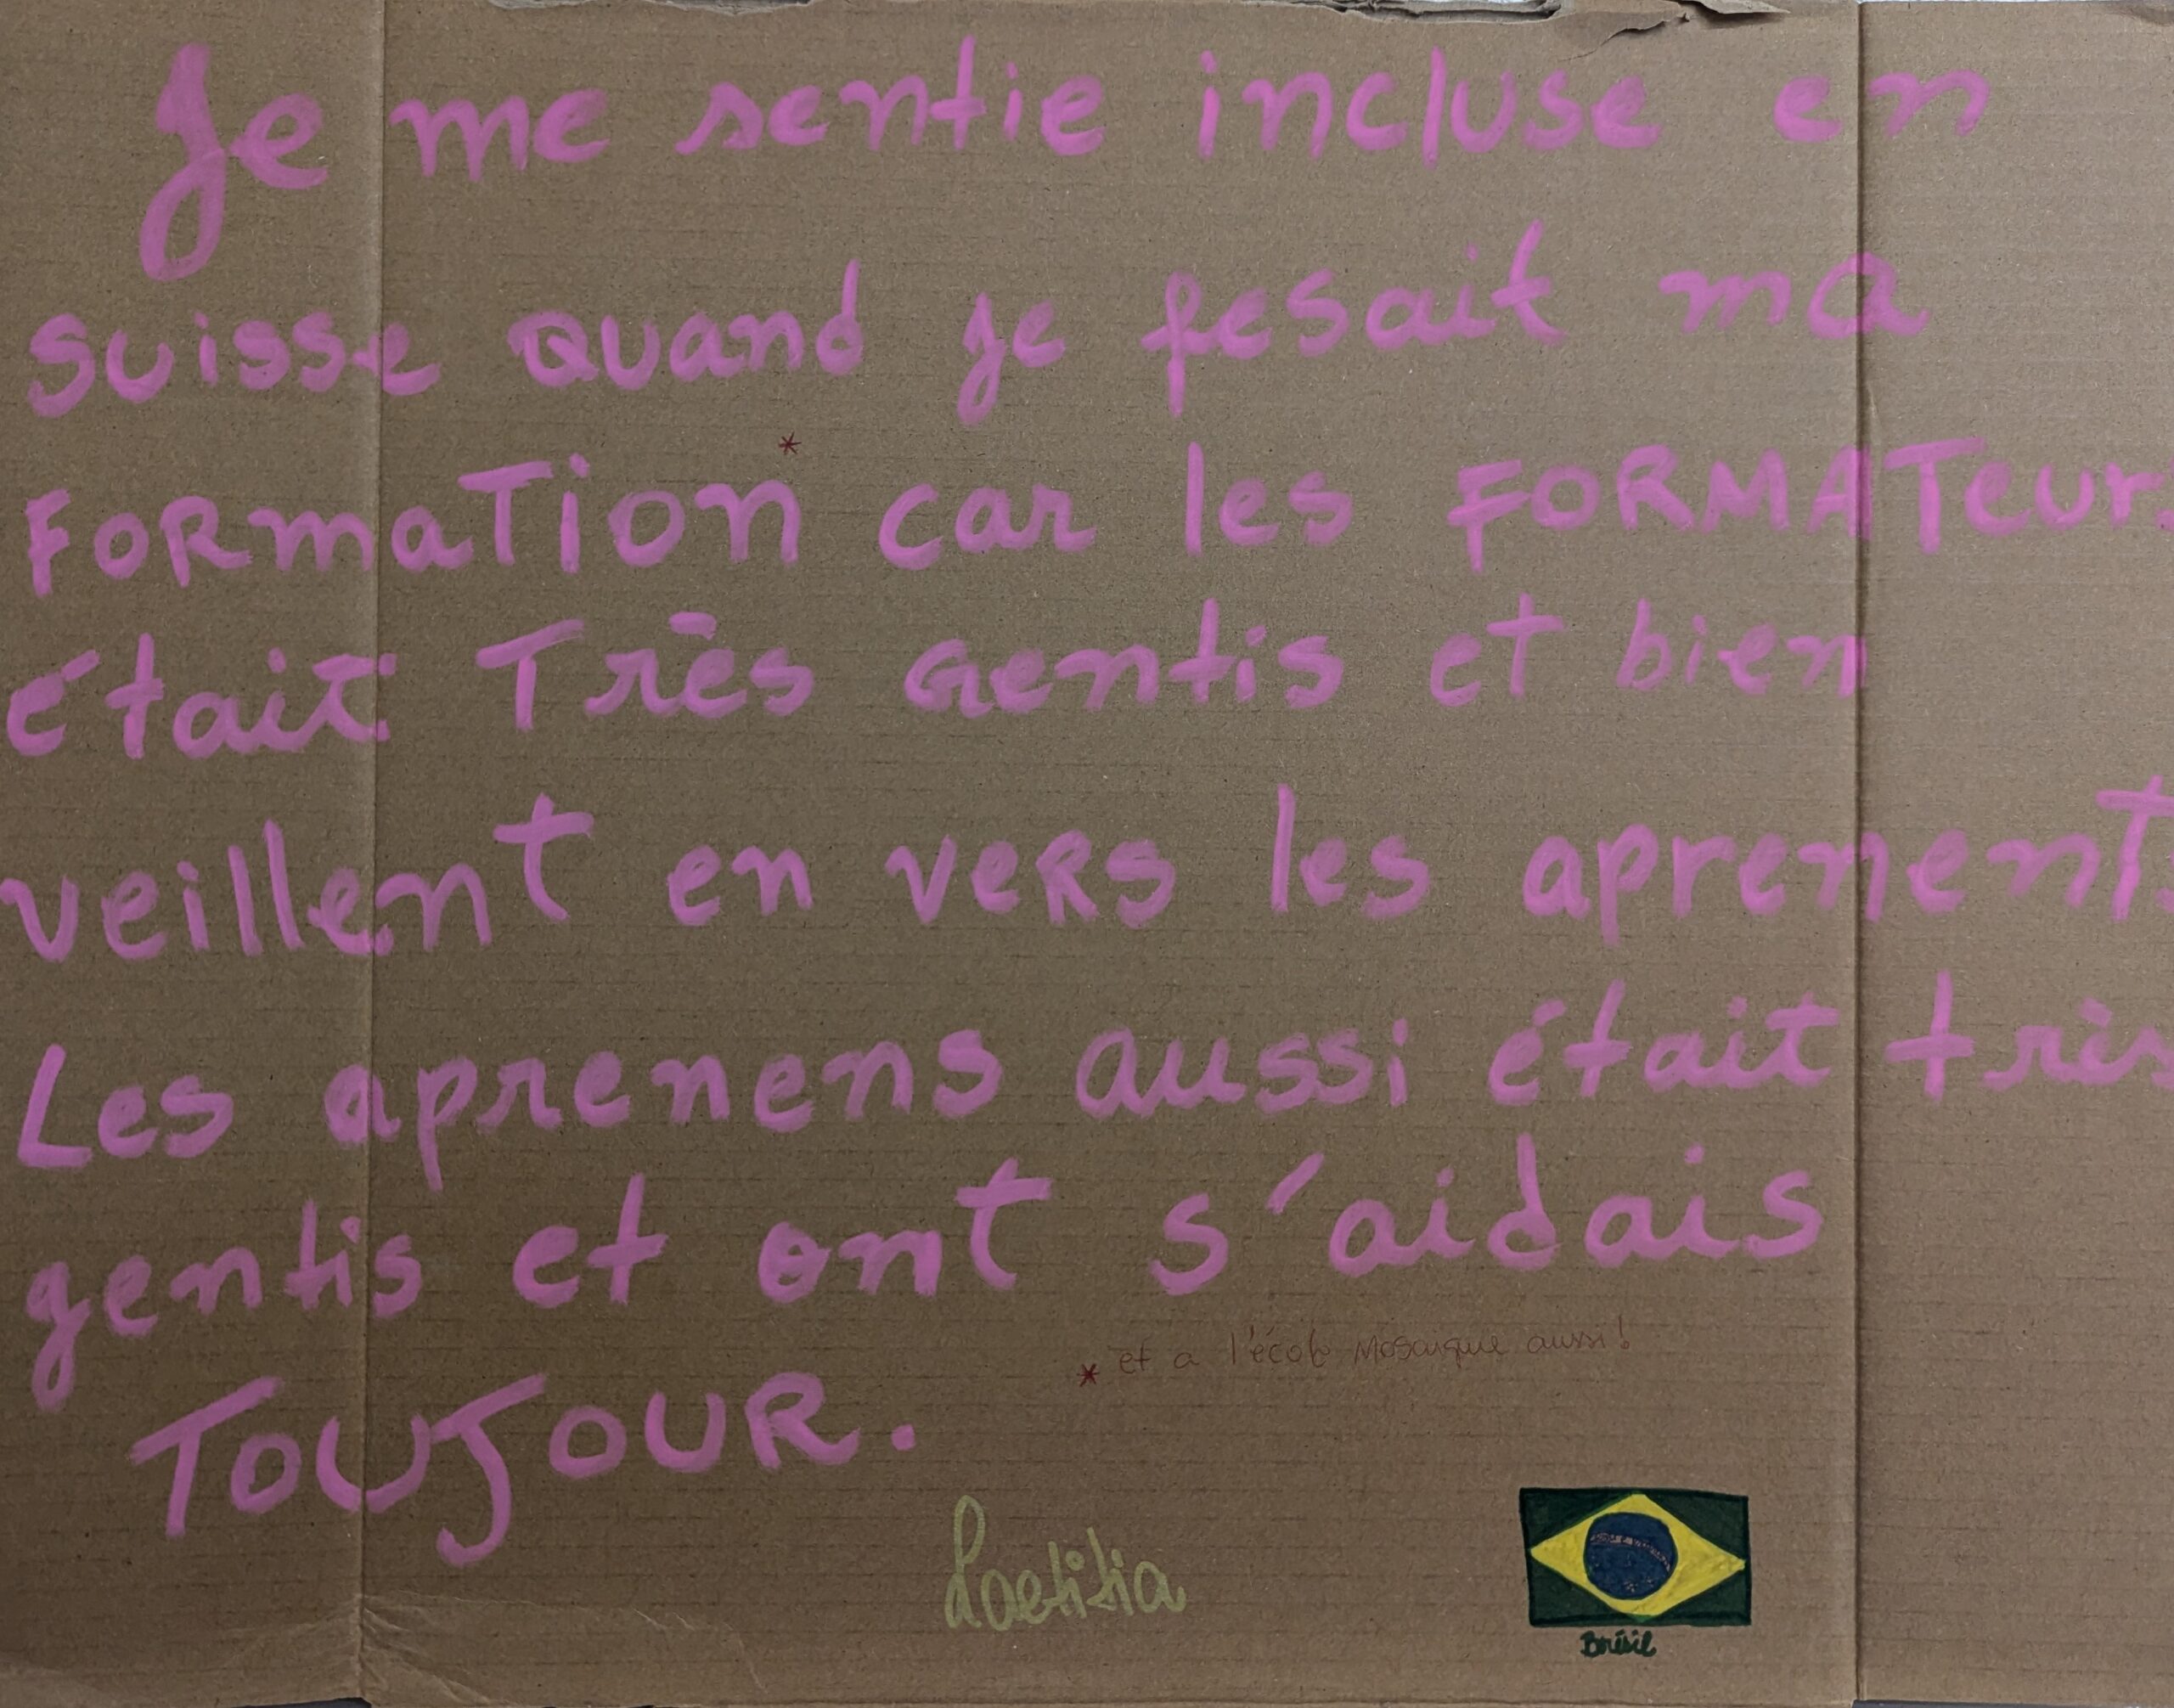 Je me sentie incluse en
suisse quand je fesait ma
FORmaTion* car les FORMATeurs
était Très Gentis et bien
veillent en veRs les aprenents
Les aprenens aussi était très
gentis et ont s'aidais
TOUJOUR.
* et a l'école Mosaique aussi!
Laetitia
Brésil